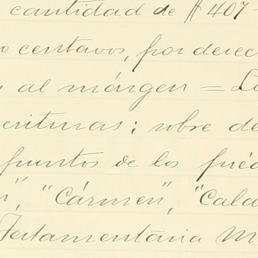 cantidad de $ 407-
centavos, por derec
al márgen = L
crituras; sobre de
puntos de los pred
", "Cármen", "Cala
Testamentaria M